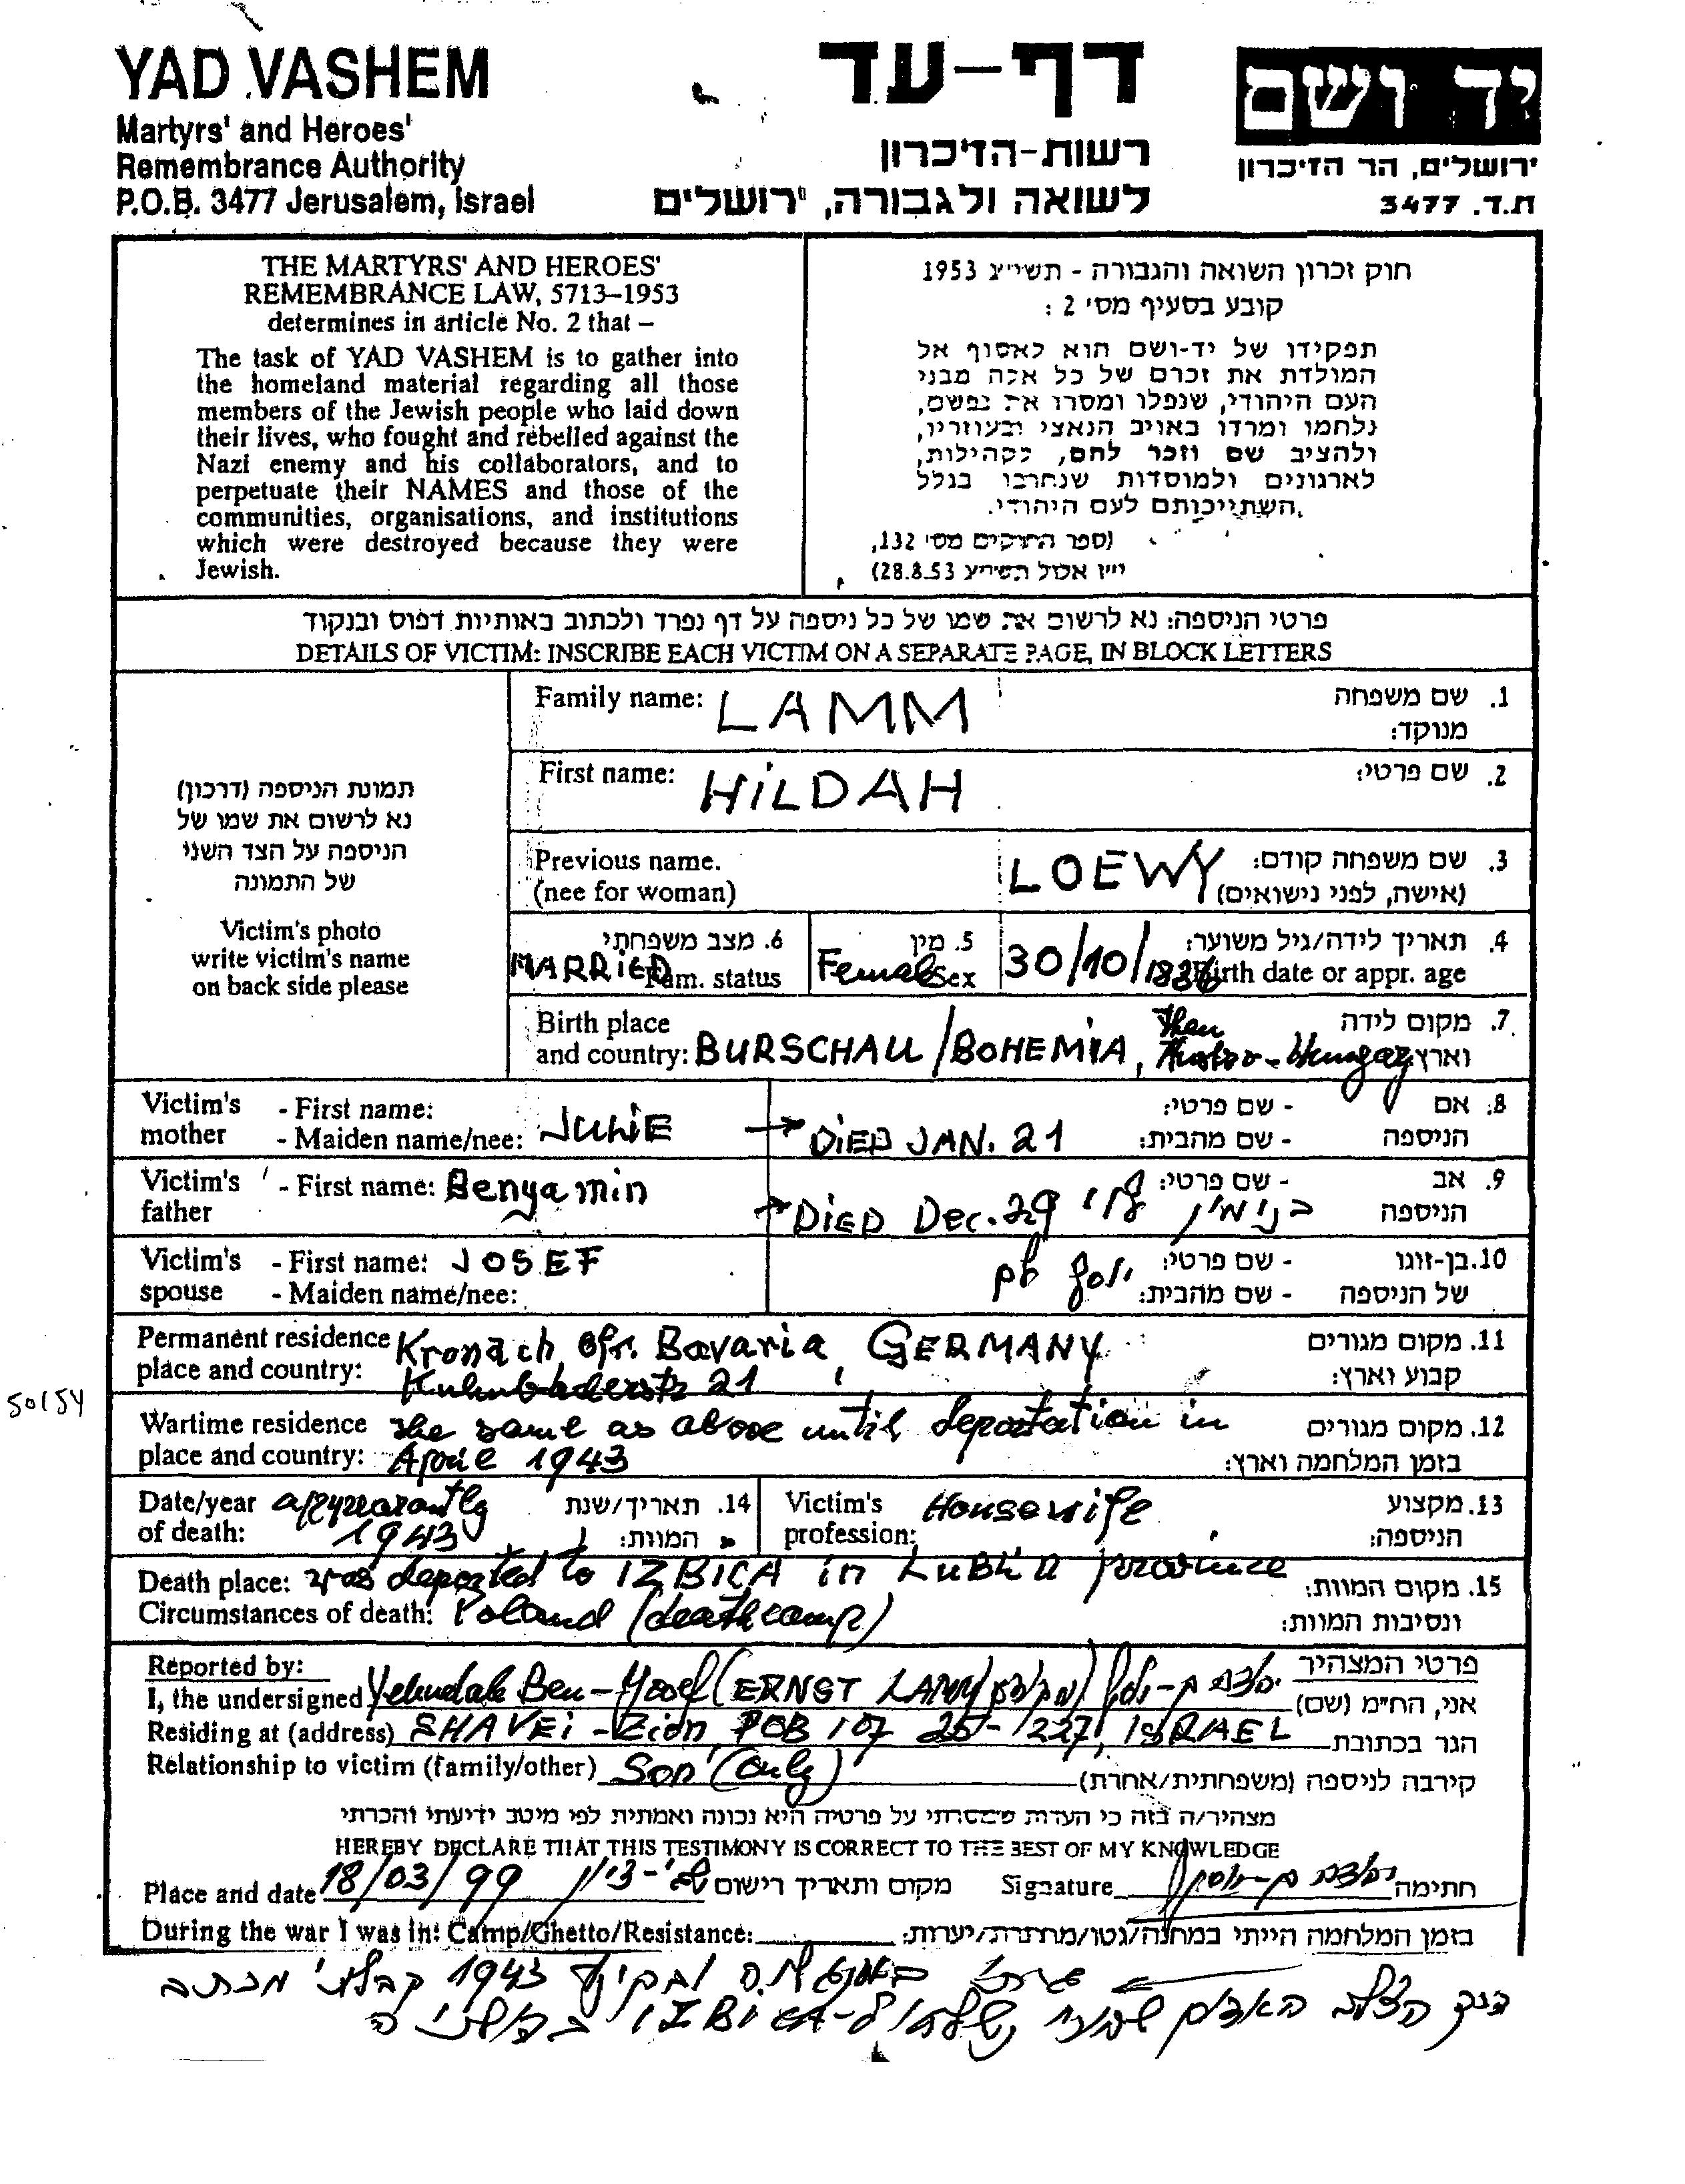 YAD VASHEM
Martyrs' and Heroes'
Remembrance Authority
P.O.B. 3477 Jerusalem, Israel
דף-עד
רשות-הזיכרון
לשואה ולגבורה, ירושלים
יד ושם
ירושלים, הר הזיכרון
ת.ד. 3477
THE MARTYRS' AND HEROES'
REMEMBRANCE LAW, 5713–1953
determines in article No. 2 that –
The task of YAD VASHEM is to gather into
the homeland material regarding all those
members of the Jewish people who laid down
their lives, who fought and rebelled against the
Nazi enemy and his collaborators, and to
perpetuate their NAMES and those of the
communities, organisations, and institutions
which were destroyed because they were
Jewish.
חוק זכרון השואה והגבורה - תשי״ג 1953
קובע בסעיף מס׳ 2 :
תפקידו של יד-ושם הוא לאסוף אל
המולדת את זכרם של כל אלה מבני
העם היהודי, שנפלו ומסרו את נפשם,
נלחמו ומרדו באויב הנאצי ובעוזריו,
ולהציב שם וזכר להם, לקהילות,
לארגונים ולמוסדות שנחרבו בגלל
השתייכותם לעם היהודי.
(ספר החוקים מס׳ 132,
י״ז אלול תשי״ג 28.8.53)
פרטי הניספה: נא לרשום את שמו של כל ניספה על דף נפרד ולכתוב באותיות דפוס ובנקוד
DETAILS OF VICTIM: INSCRIBE EACH VICTIM ON A SEPARATE PAGE, IN BLOCK LETTERS
תמונת הניספה (דרכון)
נא לרשום את שמו של
הניספה על הצד השני
של התמונה
Victim's photo
write victim's name
on back side please
Family name: LAMM 1. שם משפחה
מנוקד:
First name: HiLDAH 2. שם פרטי:
Previous name. LOEWY 3. שם משפחה קודם:
(nee for woman) (אישה, לפני נישואים)
6. מצב משפחתי 5. מין 4. תאריך לידה/גיל משוער:
MARRiED Fam. status Female Sex 30/10/ Birth date or appr. age
Birth place then 7. מקום לידה
and country: BURSCHAU/BOHEMiA, וארץ
Victim's - First name: - שם פרטי: 8. אם
mother - Maiden name/nee: JULiE → DiED JAN. 21 - שם מהבית: הניספה
Victim's - First name: Benyamin - שם פרטי: 9. אב
father → DiED Dec. 29 בנימין הניספה
Victim's - First name: JOSEF יוסף - שם פרטי: 10. בן-זוגו
spouse - Maiden name/nee: - שם מהבית: של הניספה
Permanent residence Kronach Ofr. Bavaria, GERMANY 11. מקום מגורים
place and country: 21 קבוע וארץ:
Wartime residence the same as above until deportation in 12. מקום מגורים
place and country: April 1943 בזמן המלחמה וארץ:
Date/year apparantly 14. תאריך/שנת Victim's Housewife 13. מקצוע
of death: 1943 המוות: profession: הניספה:
Death place: was deported to IZBICA in LUBLIN province 15. מקום המוות:
Circumstances of death: Poland (deathcamp) ונסיבות המוות:
Reported by: פרטי המצהיר
I, the undersigned Yehudah Ben-Yosef (ERNST LAMM) יהודה בן-יוסף אני, הח״מ (שם)
Residing at (address) SHAVEi-Zion POB 107 25-227, ISRAEL הגר בכתובת
Relationship to victim (family/other) Son (only) קירבה לניספה (משפחתית/אחרת)
מצהיר/ה בזה כי העדות שמסרתי על פרטיה היא נכונה ואמתית לפי מיטב ידיעתי והכרתי
HEREBY DECLARE THAT THIS TESTIMONY IS CORRECT TO THE BEST OF MY KNOWLEDGE
Place and date 18/03/99 שבי-ציון מקום ותאריך רישום Signature יהודה בן-יוסף חתימה
During the war I was in: Camp/Ghetto/Resistance: בזמן המלחמה הייתי במחנה/גטו/מחתרת/יערות:
1943 קבלתי מכתב
דרך הצלב האדום IZBiCA
50154